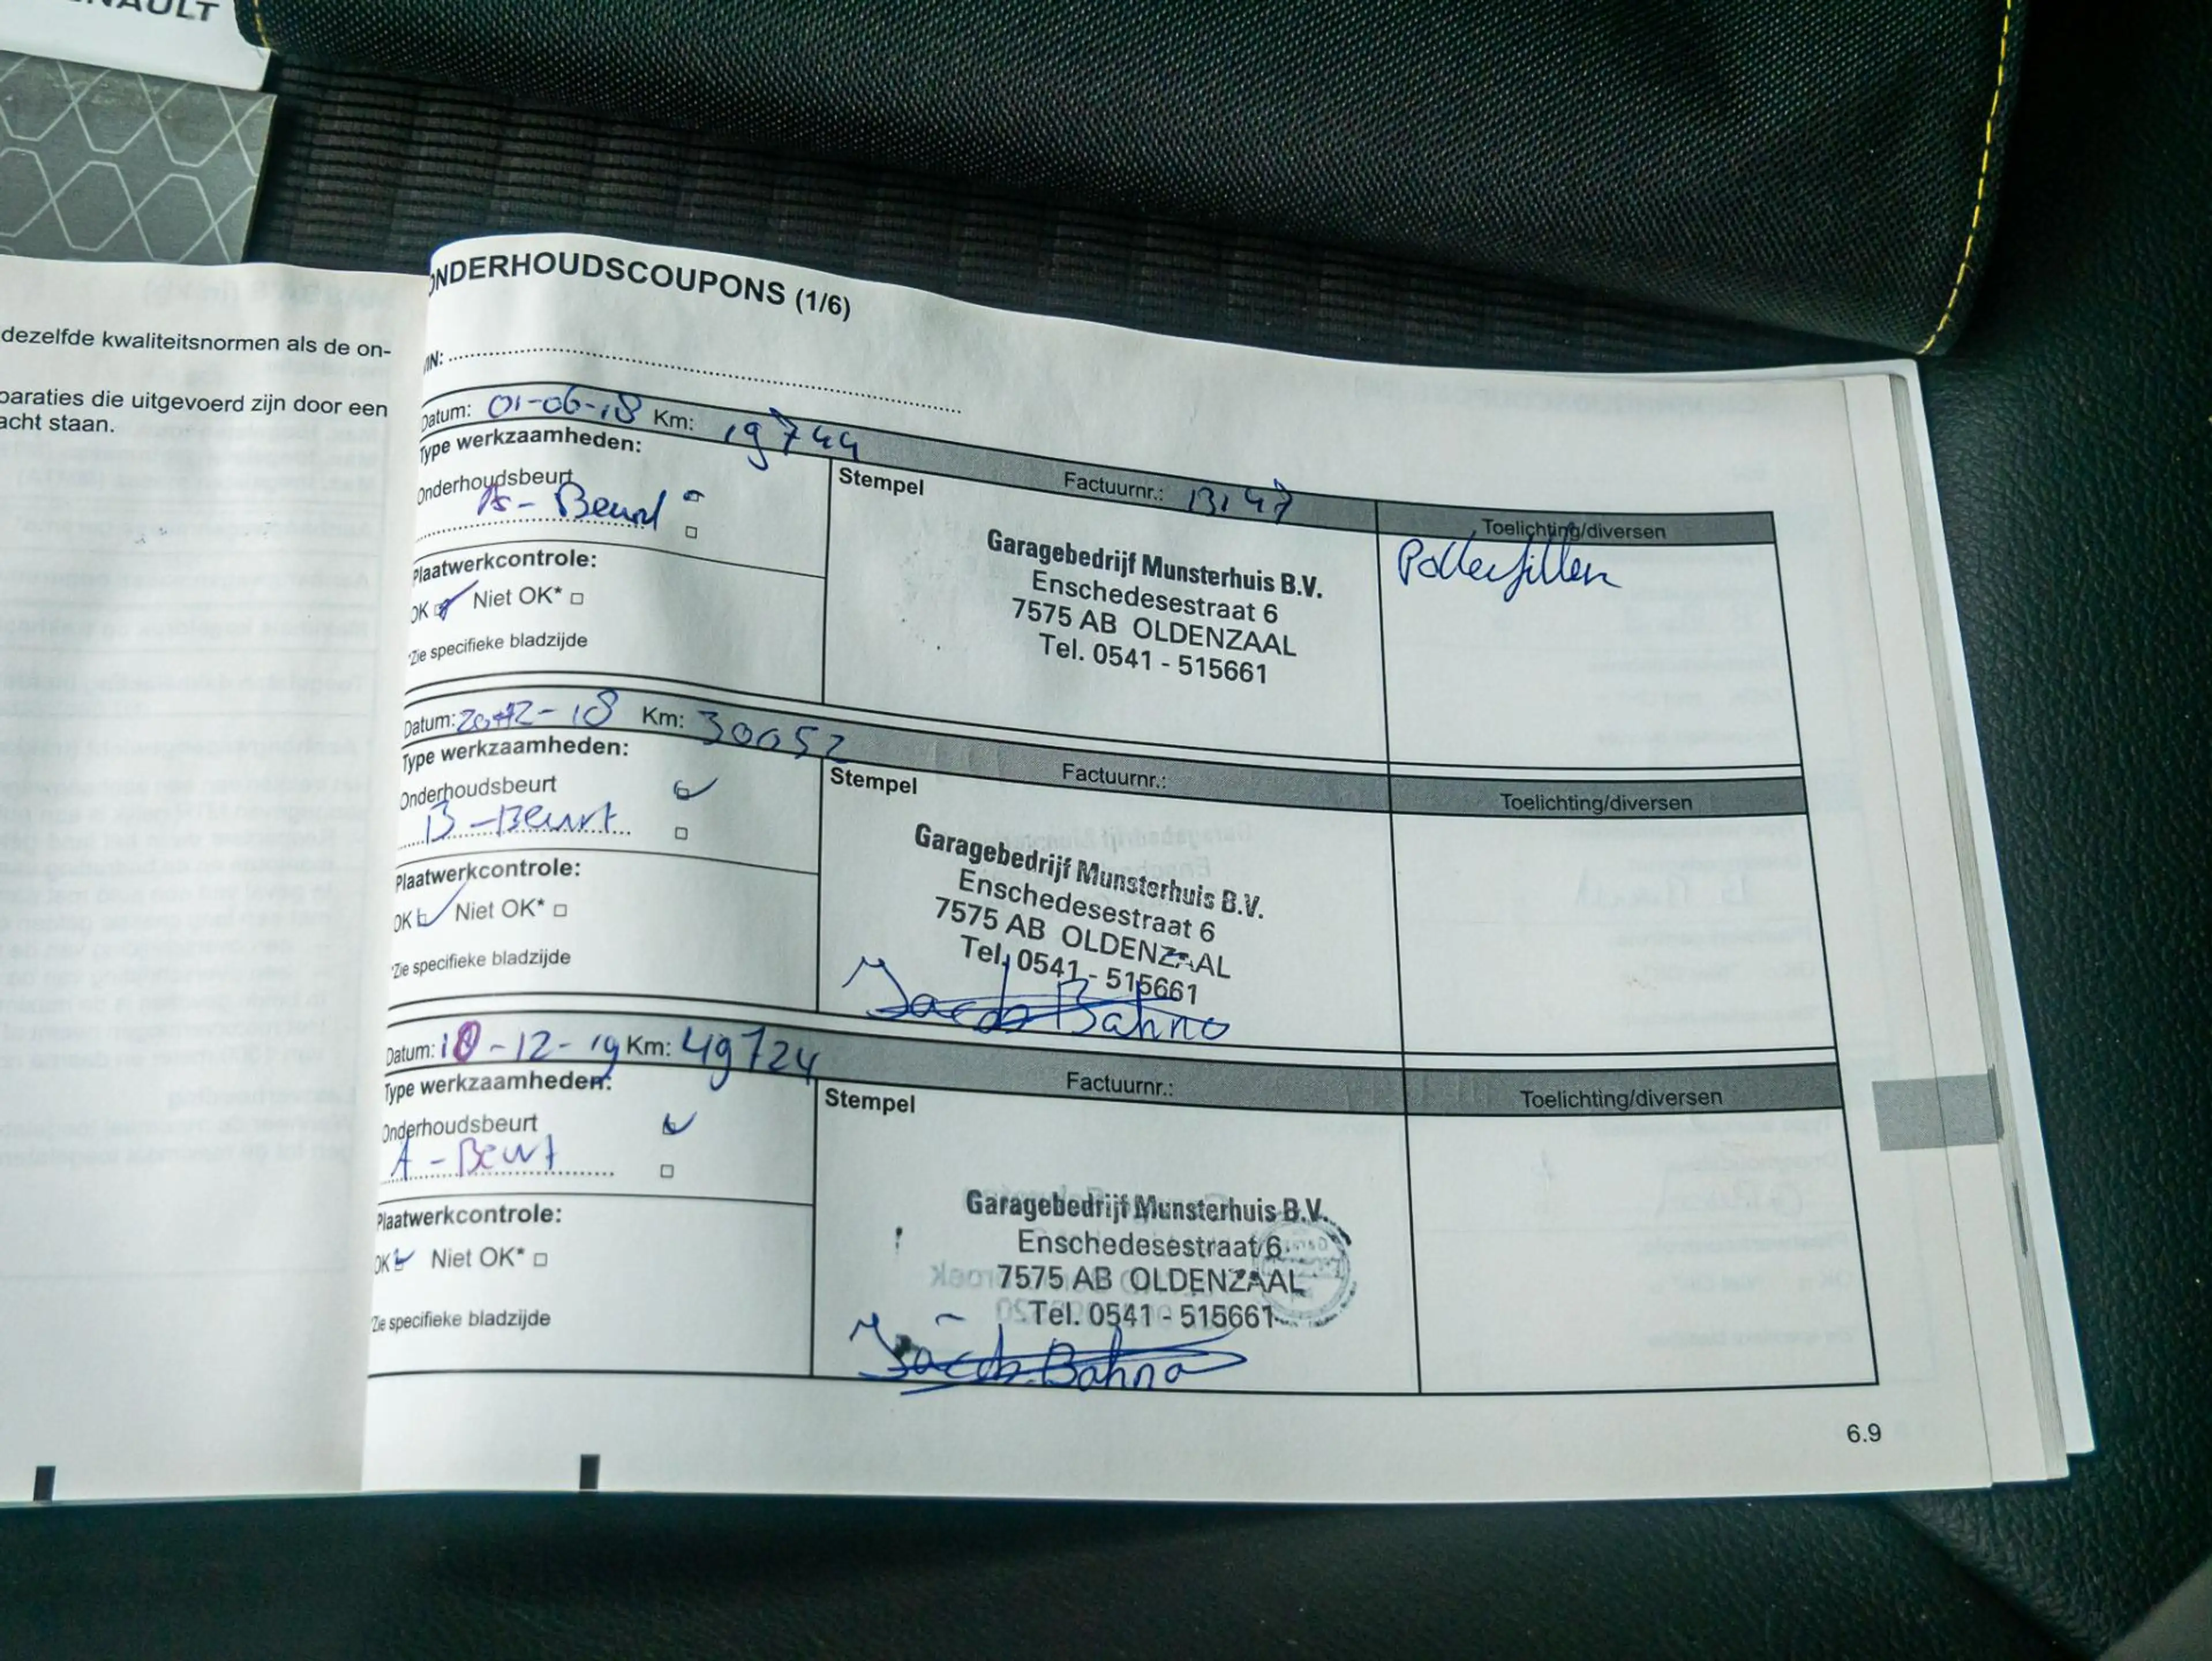 NAULT
dezelfde kwaliteitsnormen als de on-
paraties die uitgevoerd zijn door een
acht staan.
ONDERHOUDSCOUPONS (1/6)
IN:
Datum: 01-06-18 Km: 19744
Factuurnr.: 13147
Type werkzaamheden:
Stempel
Toelichting/diversen
Onderhoudsbeurt
B - Beurt
Pollenfilter
Plaatwerkcontrole:
OK Niet OK*
*Zie specifieke bladzijde
Garagebedrijf Munsterhuis B.V.
Enschedesestraat 6
7575 AB OLDENZAAL
Tel. 0541 - 515661
Datum: 20-12-18 Km: 30052
Factuurnr.:
Type werkzaamheden:
Stempel
Toelichting/diversen
Onderhoudsbeurt
B - Beurt
Plaatwerkcontrole:
OK Niet OK*
*Zie specifieke bladzijde
Garagebedrijf Munsterhuis B.V.
Enschedesestraat 6
7575 AB OLDENZAAL
Tel. 0541 - 515661
Jacob Bahno
Datum: 18-12-19 Km: 49724
Factuurnr.:
Type werkzaamheden:
Stempel
Toelichting/diversen
Onderhoudsbeurt
A - Beurt
Plaatwerkcontrole:
OK Niet OK*
Zie specifieke bladzijde
Garagebedrijf Munsterhuis B.V.
Enschedesestraat 6
7575 AB OLDENZAAL
Tel. 0541 - 515661
Jacob Bahno
6.9